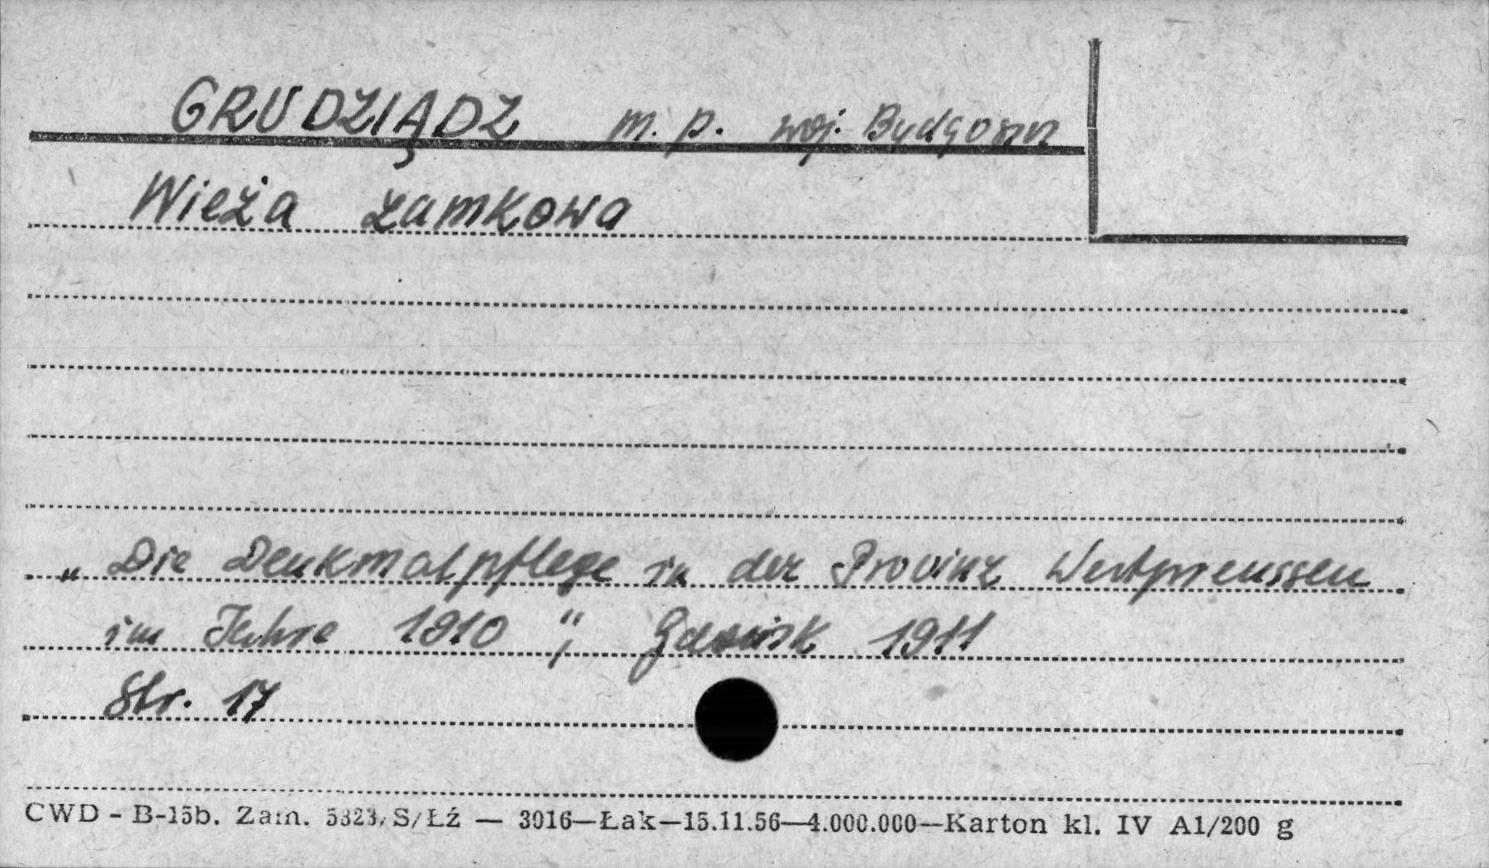 GRUDZIĄDZ m. p. woj. Bydgoszcz
Wieża zamkowa
„Die Denkmalpflege in der Provinz Westpreussen
im Jahre 1910“, Gdańsk 1911
Str. 17
CWD - B-15b. Zam. 5323/S/Łź — 3016—Łak—15.11.56—4.000.000—Karton kl. IV A1/200 g